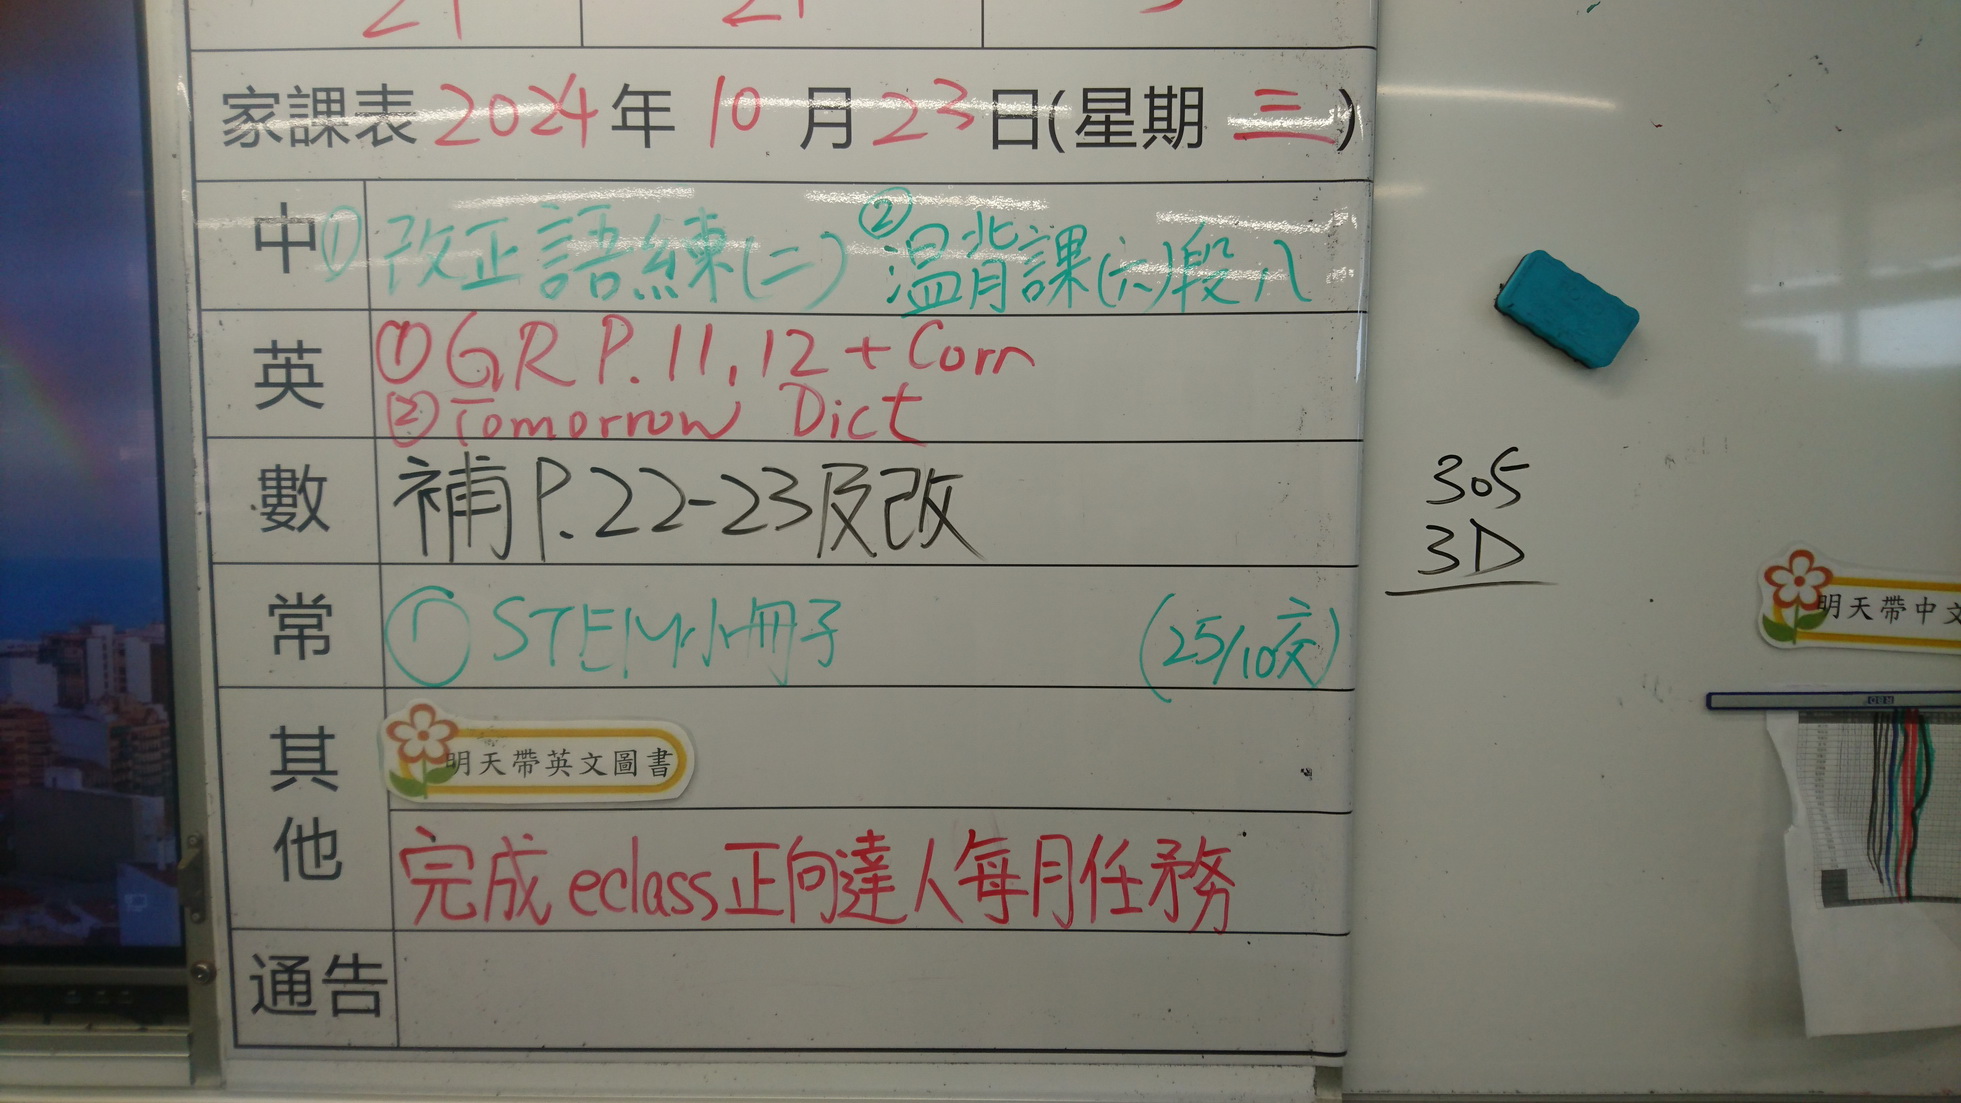 家課表 2024 年 10 月 23 日(星期 三)
中 ① 改正語練(二) ② 温背課(六)段八
英 ① GR P.11,12 + Corr
② Tomorrow Dict
數 補P.22-23及改
常 ① STEM小冊子 (25/10交)
其他 明天帶英文圖書
完成 eclass 正向達人每月任務
通告
305
3D
明天帶中文